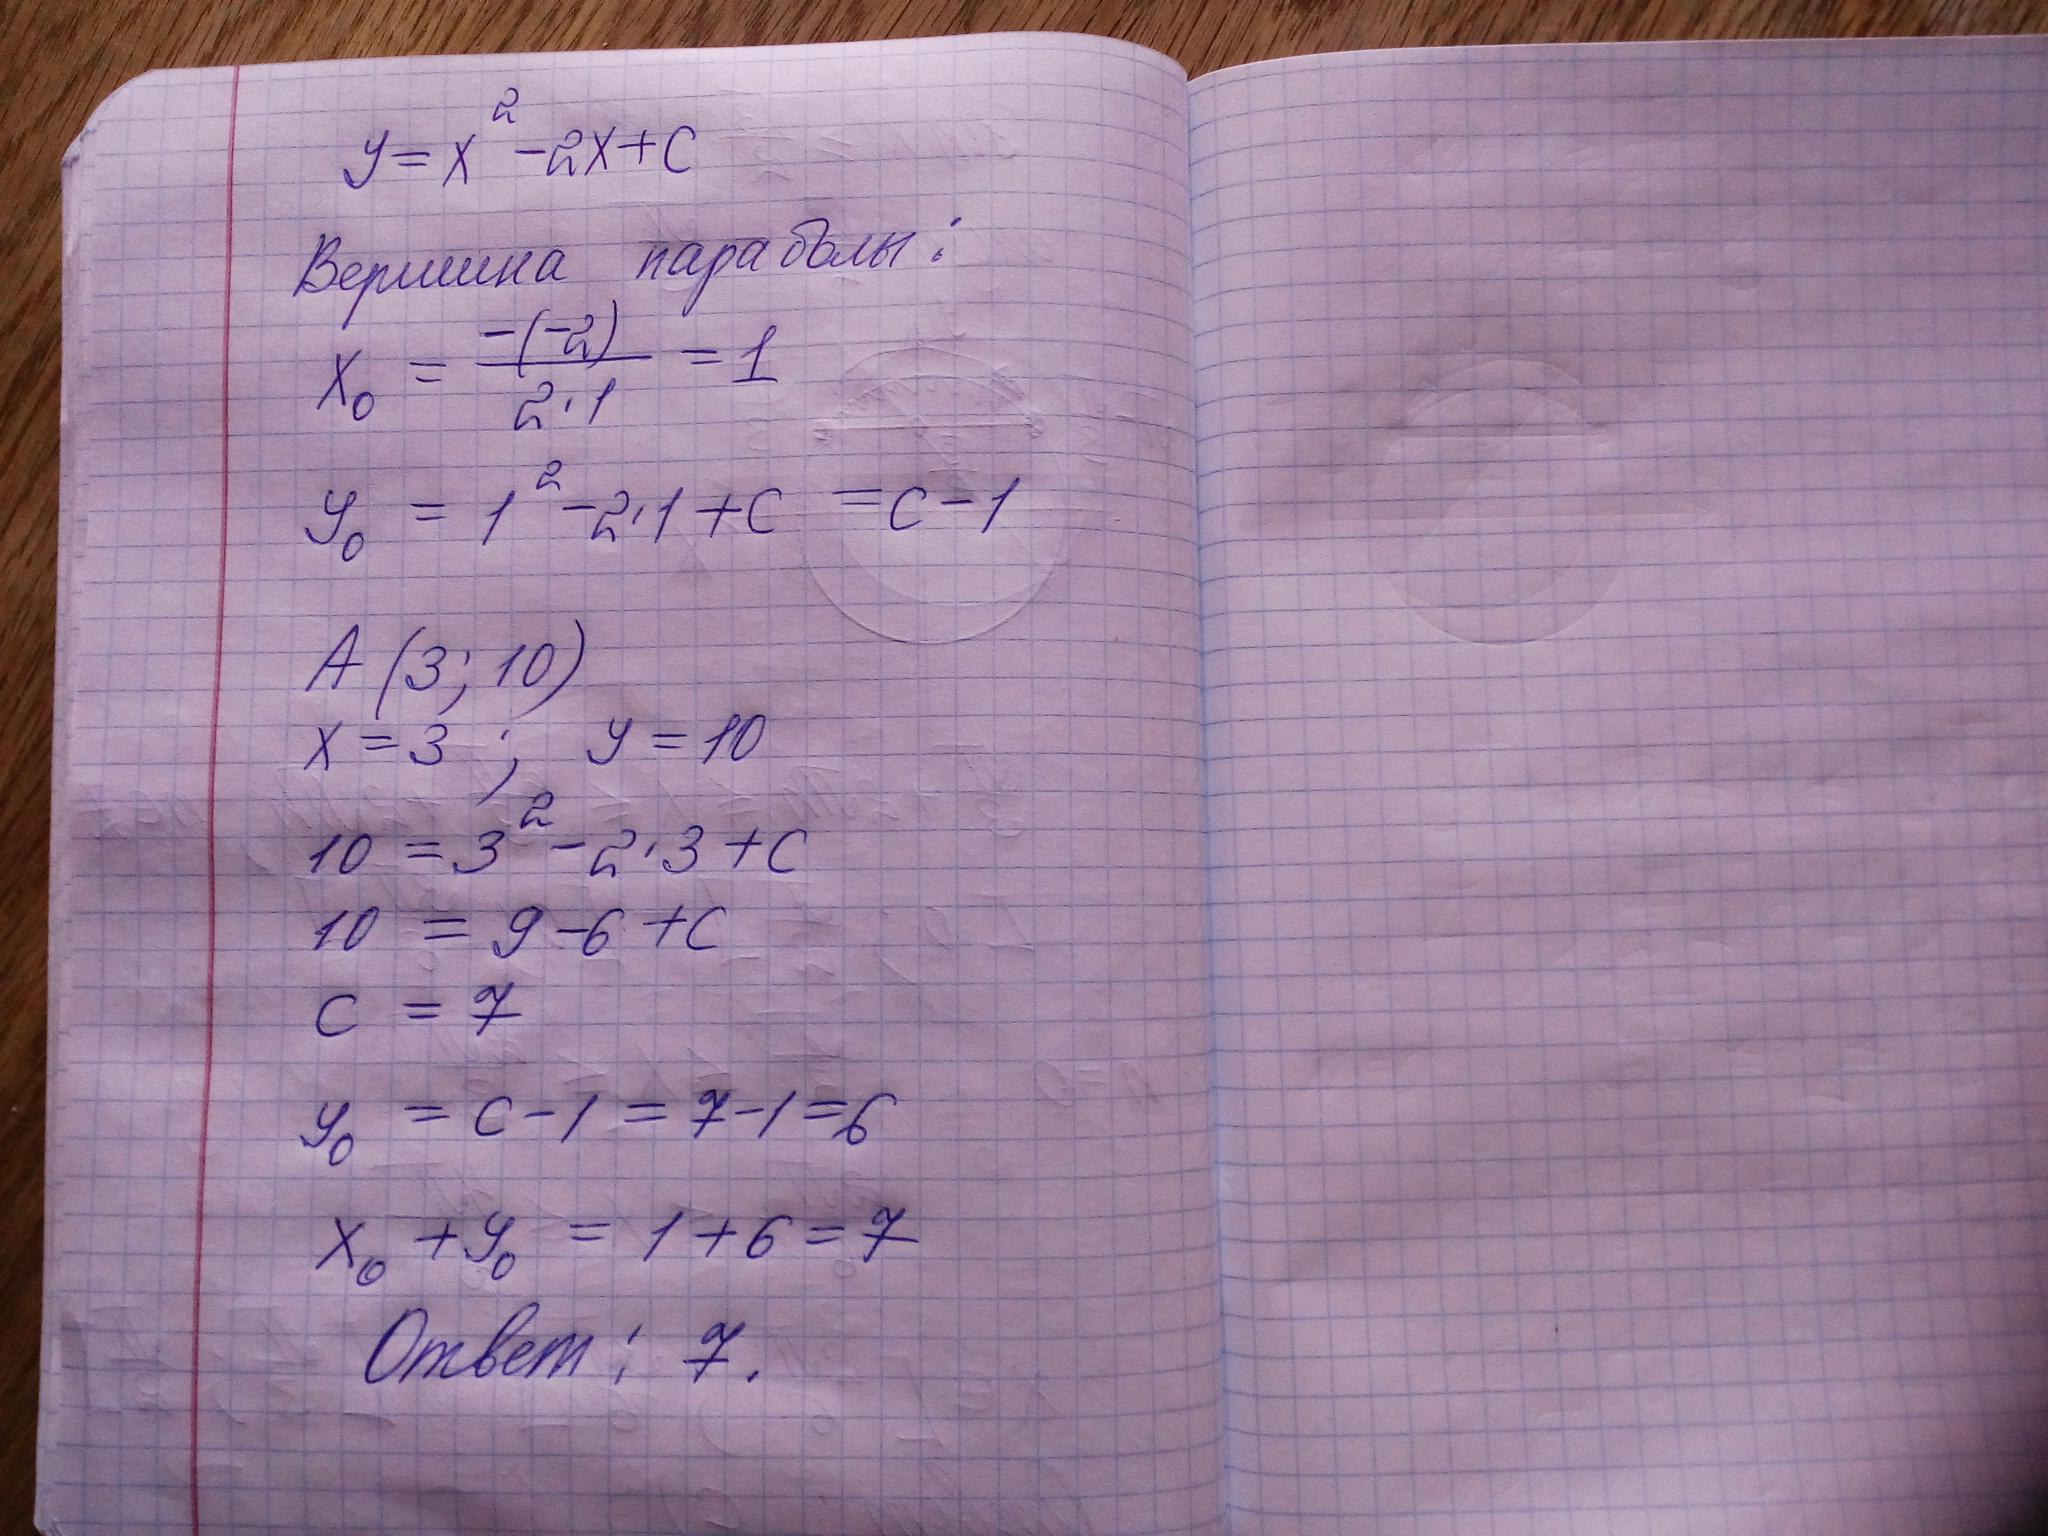 y = x² - 2x + c
Вершина параболы:
x₀ = -(-2) / 2·1 = 1
y₀ = 1² - 2·1 + c = c - 1
A (3; 10)
x = 3 ; y = 10
10 = 3² - 2·3 + c
10 = 9 - 6 + c
c = 7
y₀ = c - 1 = 7 - 1 = 6
x₀ + y₀ = 1 + 6 = 7
Ответ: 7.